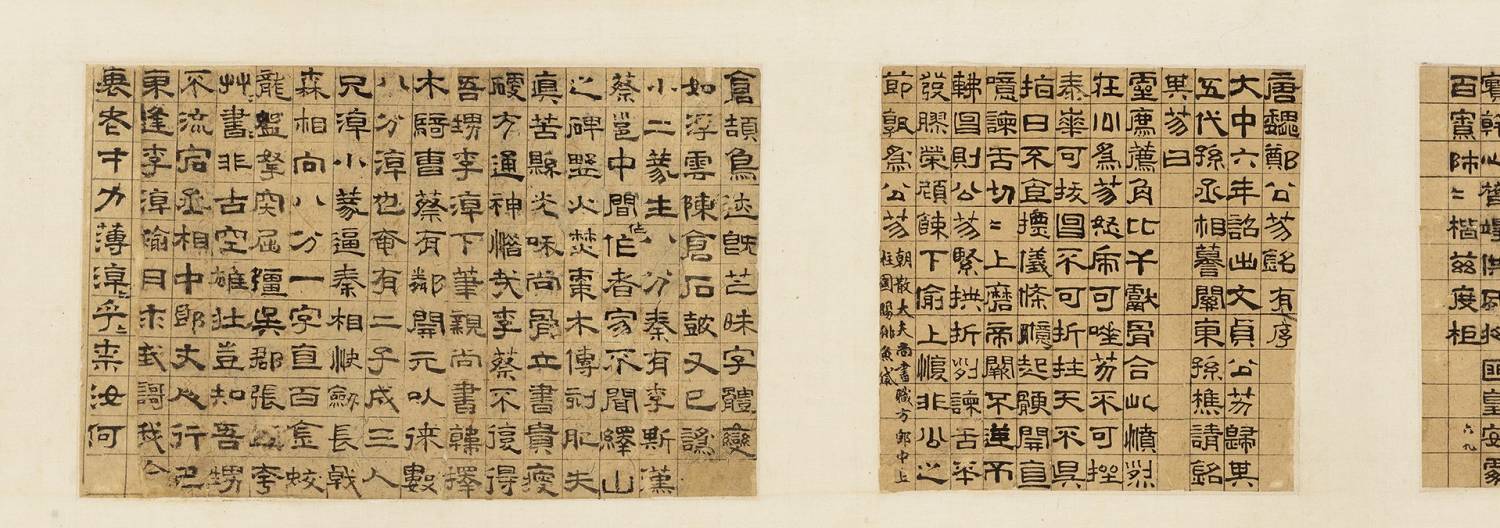 百賓師〻楷茲度柜
六九
唐魏鄭公笏銘有序
大中六年詔出文貞公笏歸其
五代孫丞相謩關東孫樵請銘
其笏曰
靈廌薦角比干獻骨合此憤烈
在公爲笏怒可唑笏不可挫
泰華可拔不可折拄天不
不宜儀起開直
噫諫舌切〻上磨帝闕
則公笏緊拱折列諫舌卒
發膠榮餗下偷上愎非公之
節孰爲公笏朝散大夫尚書職方郎中上
柱國賜緋魚袋
倉頡鳥迹旣芒昧字體變
如浮雲陳倉石鼓又已譌
小二篆生八分秦有李斯漢
蔡邕中間作作者家不聞繹山
之碑野火焚棗木傳刻肥失
真苦縣光和尚骨立書貴瘦
硬方通神惜哉李蔡不復得
吾甥李潮下筆親尚書韓擇
木騎曹蔡有鄰開元以徠數
八分潮也奄有二子成三人
況潮小篆逼秦相快劍長戟
森相向八分一字直百金蛟
龍盤拏突屈彊吳郡張顛夸
艸書非古空雄壯豈如吾甥
不流宕丞相中郎丈人行巴
東逢李潮逾月求我謌我今
衰老才力薄潮〻乎〻柰汝何